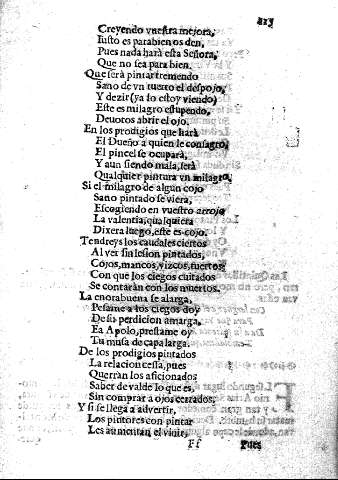 113
Creyendo vuestra mejora,
Iusto es parabien os den,
Pues nada harà esta Señora,
Que no sea para bien.
Que serà pintar tremendo
Sano de vn tuerto el despojo,
Y dezir (ya lo estoy viendo)
Este es milagro estupendo,
Deuotos abrir el ojo.
En los prodigios que harà
El Dueño a quien le consagro,
El pincel se ocuparà,
Y aun siendo mala, serà
Qualquier pintura vn milagro.
Si el milagro de algun cojo
Sano pintado se viera,
Escogiendo en vuestro arrojo
La valentia, qualquiera
Dixera luego, este es cojo.
Tendreys los caudales ciertos
Al ver sin lesion pintados,
Cojos, mancos, vizcos, tuertos,
Con que los ciegos cuitados
Se contaràn con los muertos.
La enorabuena se alarga,
Pesame a los ciegos doy
De su perdicion amarga,
Ea Apolo, prestame oy
Tu musa de capa larga.
De los prodigios pintados
La relacion cessa, pues
Querràn los aficionados
Saber de valde lo que es,
Sin comprar a ojos cerrados,
Y si se llega a advertir,
Los pintores con pintar
Les aumentan el viuir,
Ff Pues